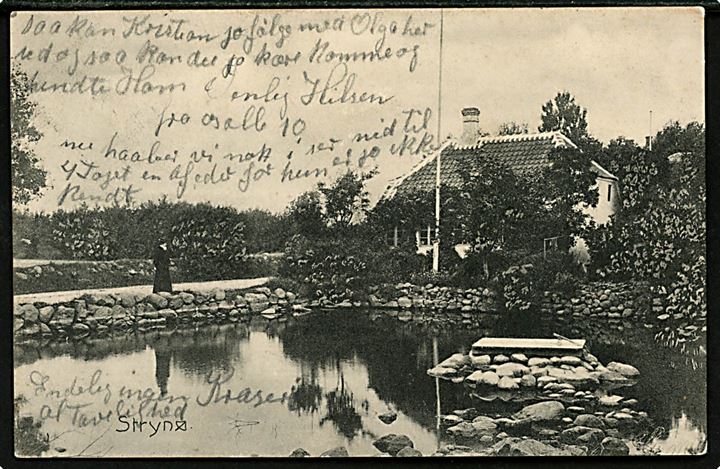 saa kan Kristian jo følge med Olga her
ned og saa kan du jo kære komme og
hendte Ham venlig Hilsen
fra os alle 10
nu haaber vi nok i ser nid til
4 Toget en af eder for hun er jo ikke
Kendt
Endelig ingen Kraser
altavelighed
Strynø.